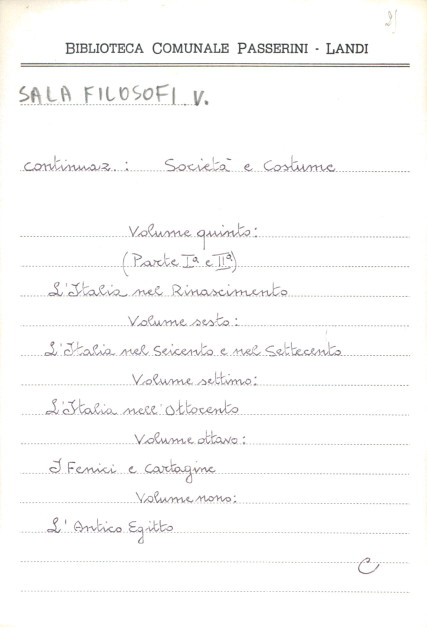 2)
BIBLIOTECA COMUNALE PASSERINI - LANDI
SALA FILOSOFI V.
continuaz.: Società e Costume
Volume quinto:
(Parte Iª e IIª)
L'Italia nel Rinascimento
Volume sesto:
L'Italia nel Seicento e nel Settecento
Volume settimo:
L'Italia nell'Ottocento
Volume ottavo:
I Fenici e Cartagine
Volume nono:
L'Antico Egitto
C